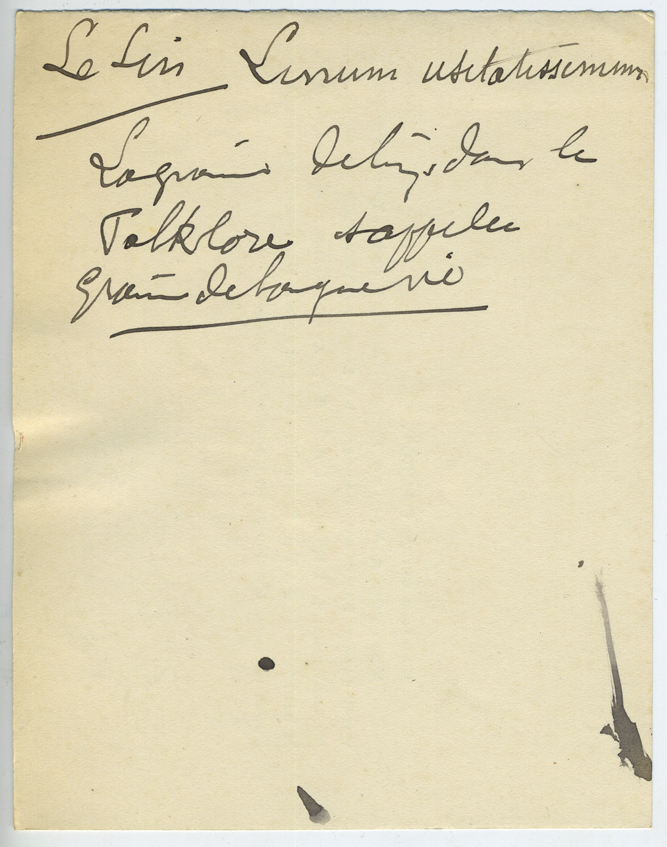 Le Lin Linum usitatissimum
La graine de lin, dans le
Folklore s'appelle
Graine de longue vie